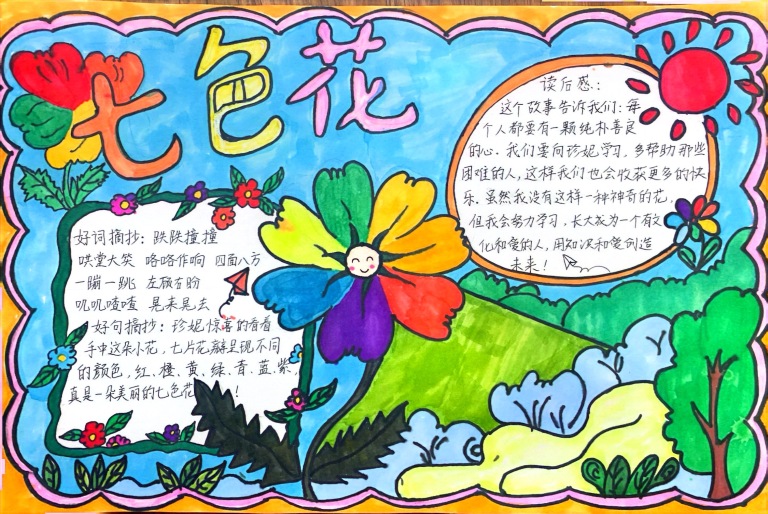 七色花
好词摘抄：跌跌撞撞
哄堂大笑 咯咯作响 四面八方
一蹦一跳 左顾右盼
叽叽喳喳 晃来晃去
好句摘抄：珍妮惊喜的看着
手中这朵小花，七片花瓣呈现不同
的颜色，红、橙、黄、绿、青、蓝、紫，
真是一朵美丽的七色花！
读后感：
这个故事告诉我们：每
个人都要有一颗纯朴善良
的心。我们要向珍妮学习，多帮助那些
困难的人，这样我们也会收获更多的快
乐。虽然我没有这样一种神奇的花，
但我会努力学习，长大成为一个有文
化和爱的人，用知识和爱创造
未来！